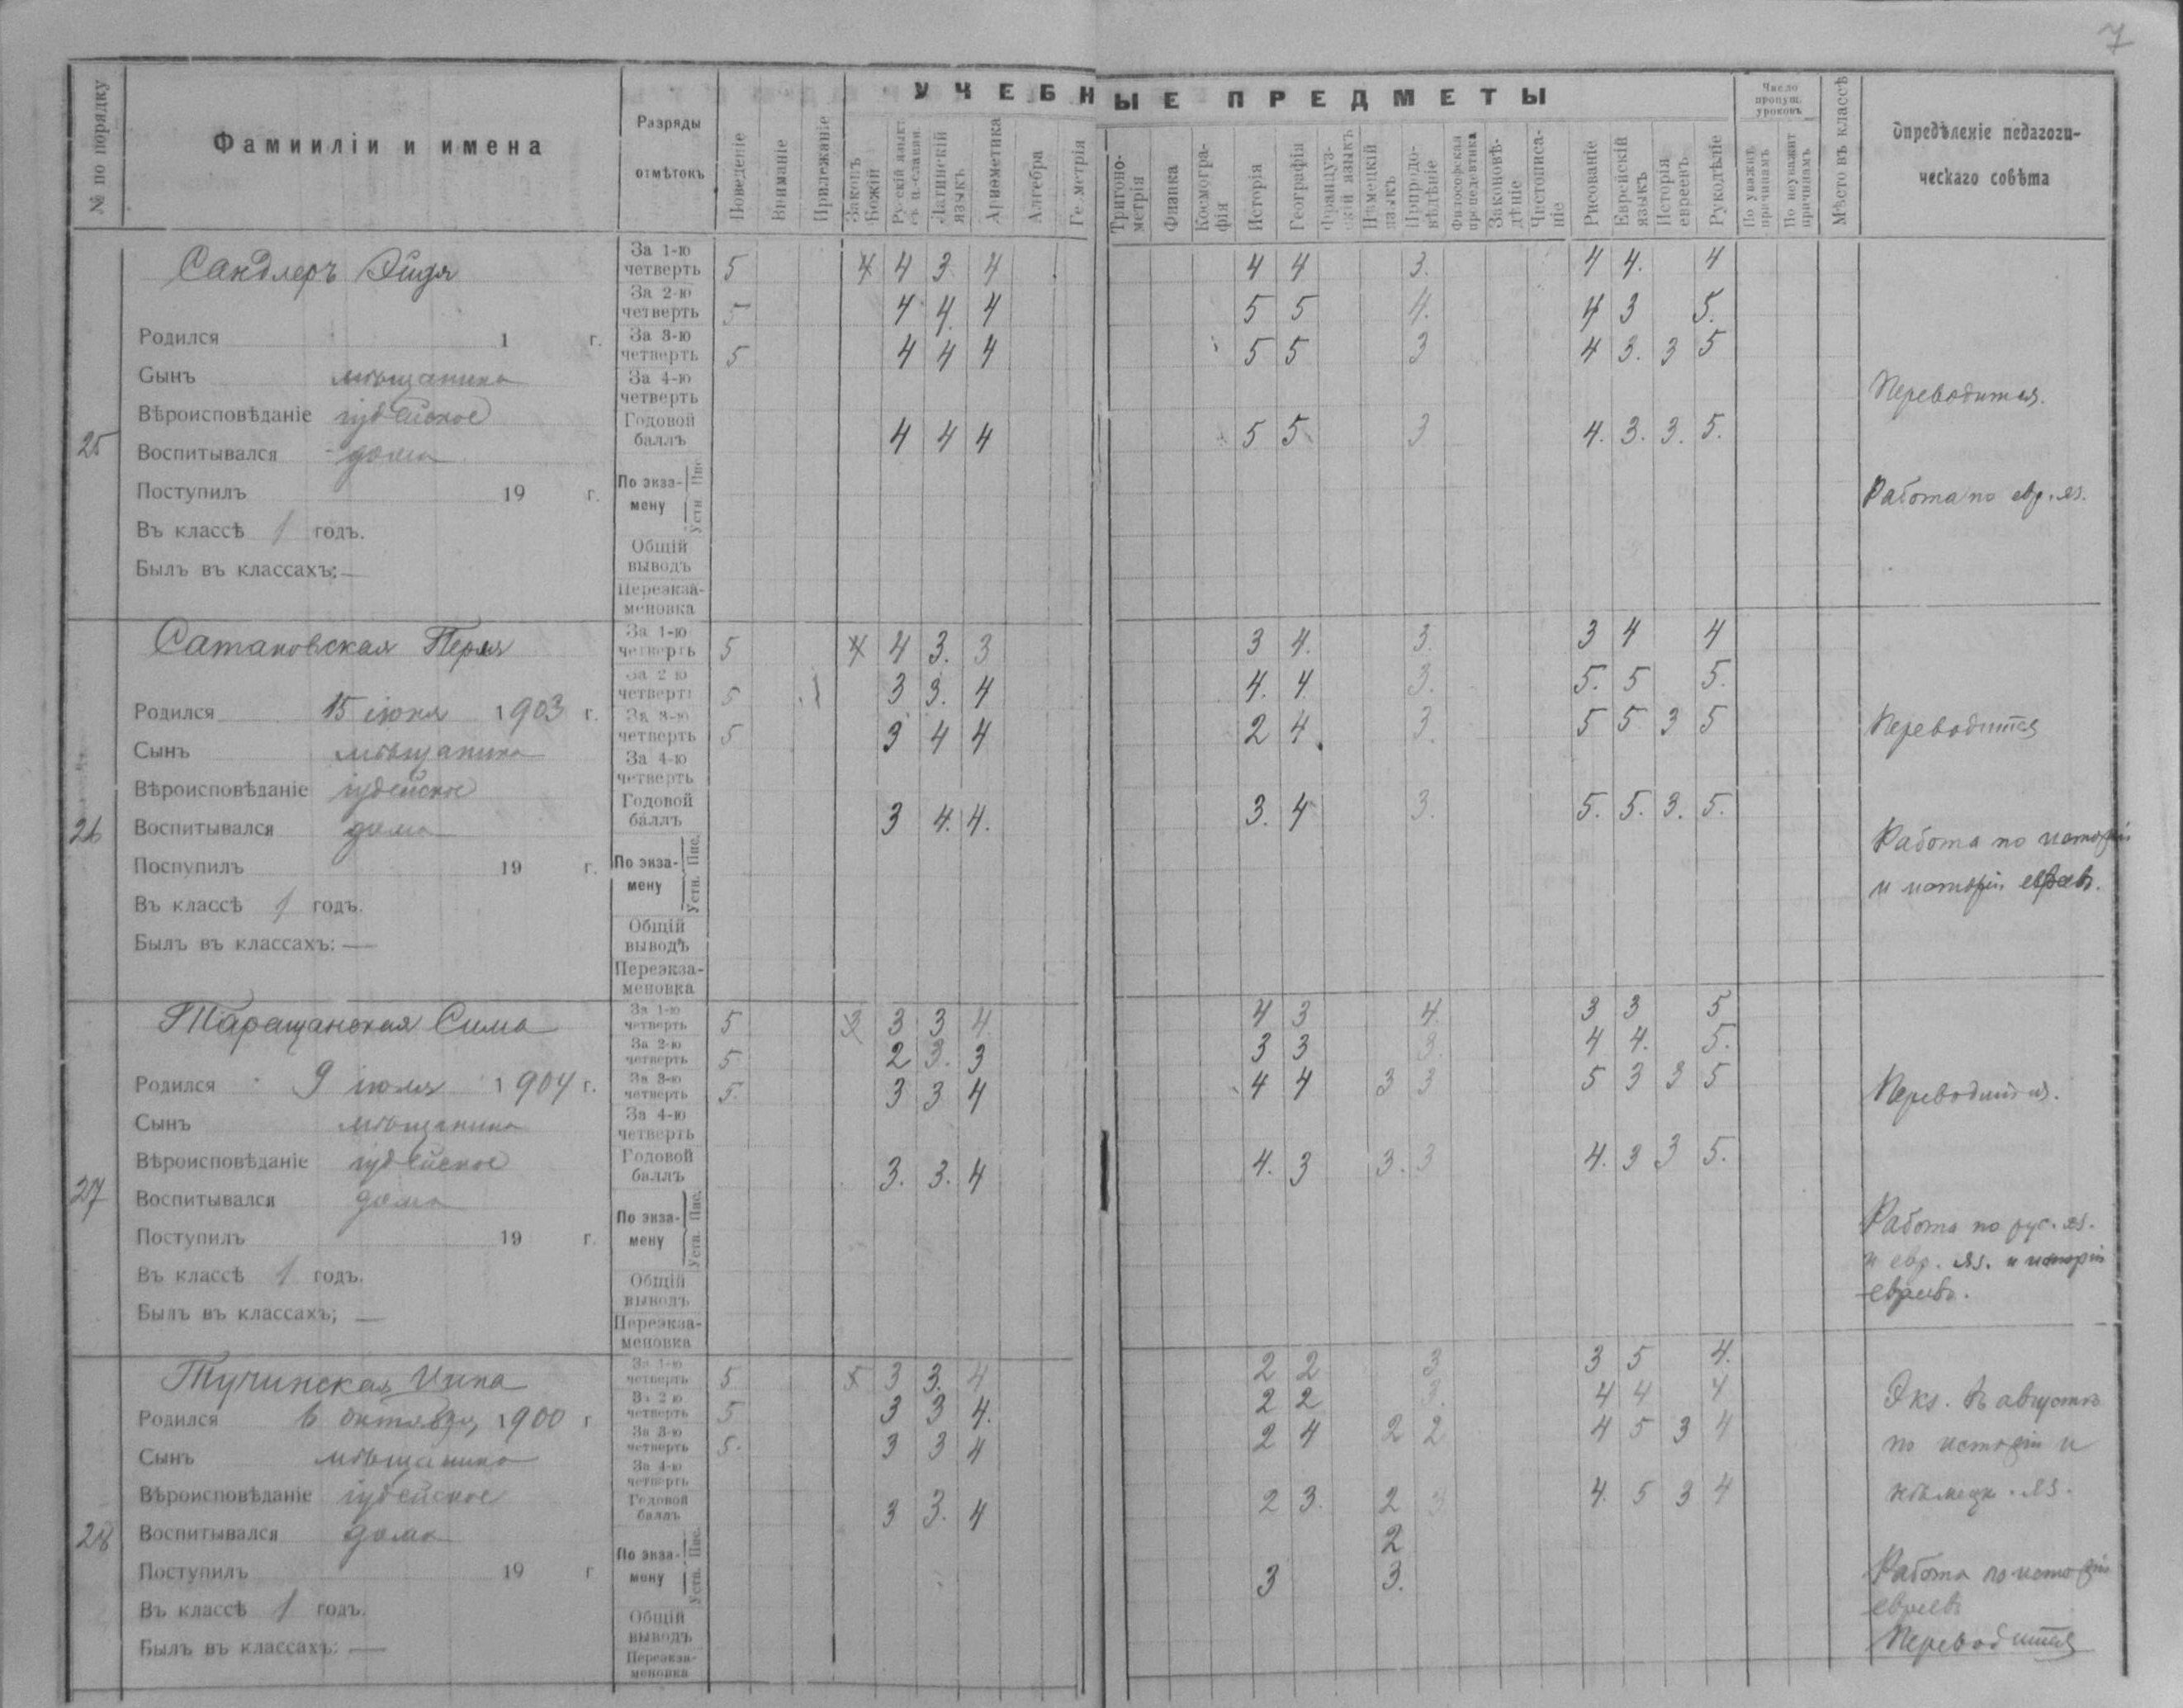 7
УЧЕБНЫЕ ПРЕДМЕТЫ
№ по порядку
Фамииліи и имена
Разряды отмѣтокъ
Поведеніе
Вниманіе
Прилежаніе
Законъ Божій
Русскій языкъ съ ц.-славян.
Латинскій языкъ
Ариѳметика
Алгебра
Геометрія
Тригоно-метрія
Физика
Космогра-фія
Исторія
Географія
Француз-скій языкъ
Нѣмецкій языкъ
Природо-вѣдѣніе
Философская пропедевтика
Законовѣ-дѣніе
Чистописа-ніе
Рисованіе
Еврейскій языкъ
Исторія евреевъ
Рукодѣліе
Число пропущ. уроковъ
По уважит. причинамъ
По неуважит. причинамъ
Мѣсто въ классѣ
Опредѣленіе педагоги-
ческаго совѣта
25
Сандлеръ Эйдя
Родился 1 г.
Сынъ мѣщанина
Вѣроисповѣданіе іудейское
Воспитывался дома
Поступилъ 19 г.
Въ классѣ 1 годъ.
Былъ въ классахъ: —
За 1-ю четверть 5 4 4 3 4 4 4 3. 4 4. 4
За 2-ю четверть 5 4 4. 4 5 5 4. 4 3 5.
За 3-ю четверть 5 4 4 4 5 5 3 4 3. 3 5
За 4-ю четверть
Годовой баллъ 4 4 4 5 5 3 4. 3. 3. 5.
По экза-мену Пис. Устн.
Общій выводъ
Переэкза-меновка
Переводится.
Работа по евр. яз.
26
Сатановская Перля
Родился 15 іюня 1903 г.
Сынъ мѣщанина
Вѣроисповѣданіе іудейское
Воспитывался дома
Поступилъ 19 г.
Въ классѣ 1 годъ.
Былъ въ классахъ: —
За 1-ю четверть 5 4 4 3. 3 3 4. 3. 3 4 4
За 2-ю четверть 5 3 3. 4 4. 4. 3. 5. 5 5.
За 3-ю четверть 5 3 4 4 2 4. 3. 5 5 3 5
За 4-ю четверть
Годовой баллъ 3 4. 4. 3. 4 3. 5. 5. 3. 5.
По экза-мену Пис. Устн.
Общій выводъ
Переэкза-меновка
Переводится
Работа по исторіи
и исторіи евреевъ.
27
Таращанская Сима
Родился 9 іюля 1904 г.
Сынъ мѣщанина
Вѣроисповѣданіе іудейское
Воспитывался дома
Поступилъ 19 г.
Въ классѣ 1 годъ.
Былъ въ классахъ; —
За 1-ю четверть 5 3 3 3 4 4 3 4. 3 3 5
За 2-ю четверть 5 2 3. 3 3 3 3. 4 4. 5.
За 3-ю четверть 5. 3 3 4 4 4 3 3 5 3 3 5
За 4-ю четверть
Годовой баллъ 3. 3. 4 4. 3 3. 3 4. 3 3 5.
По экза-мену Пис. Устн.
Общій выводъ
Переэкза-меновка
Переводится.
Работа по рус. яз.
и евр. яз. и исторіи
евреевъ.
28
Тучинская Чипа
Родился 6 октября 1900 г
Сынъ мѣщанина
Вѣроисповѣданіе іудейское
Воспитывался дома
Поступилъ 19 г
Въ классѣ 1 годъ.
Былъ въ классахъ: —
За 1-ю четверть 5 5 3 3. 4 2 2 3 3 5 4.
За 2-ю четверть 5 3 3 4. 2 2 3. 4 4 4
За 3-ю четверть 5. 3 3 4 2 4 2 2 4 5 3 4
За 4-ю четверть
Годовой баллъ 3 3. 4 2 3. 2 3 4. 5 3 4
По экза-мену Пис. 2
Устн. 3 3.
Общій выводъ
Переэкза-меновка
Экз. въ августѣ
по исторіи и
нѣмецк. яз.
Работа по исторіи
евреевъ
Переводится